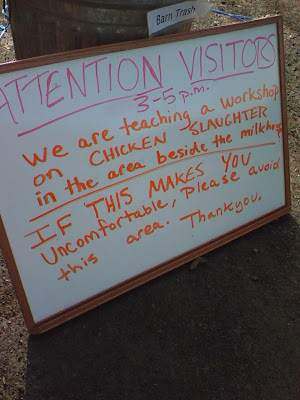 Barn Trash
ATTENTION VISITORS
3-5 p.m.
We are teaching a workshop
on CHICKEN SLAUGHTER
in the area beside the milkhouse.
IF THIS MAKES YOU
Uncomfortable, Please avoid
this area. Thankyou.